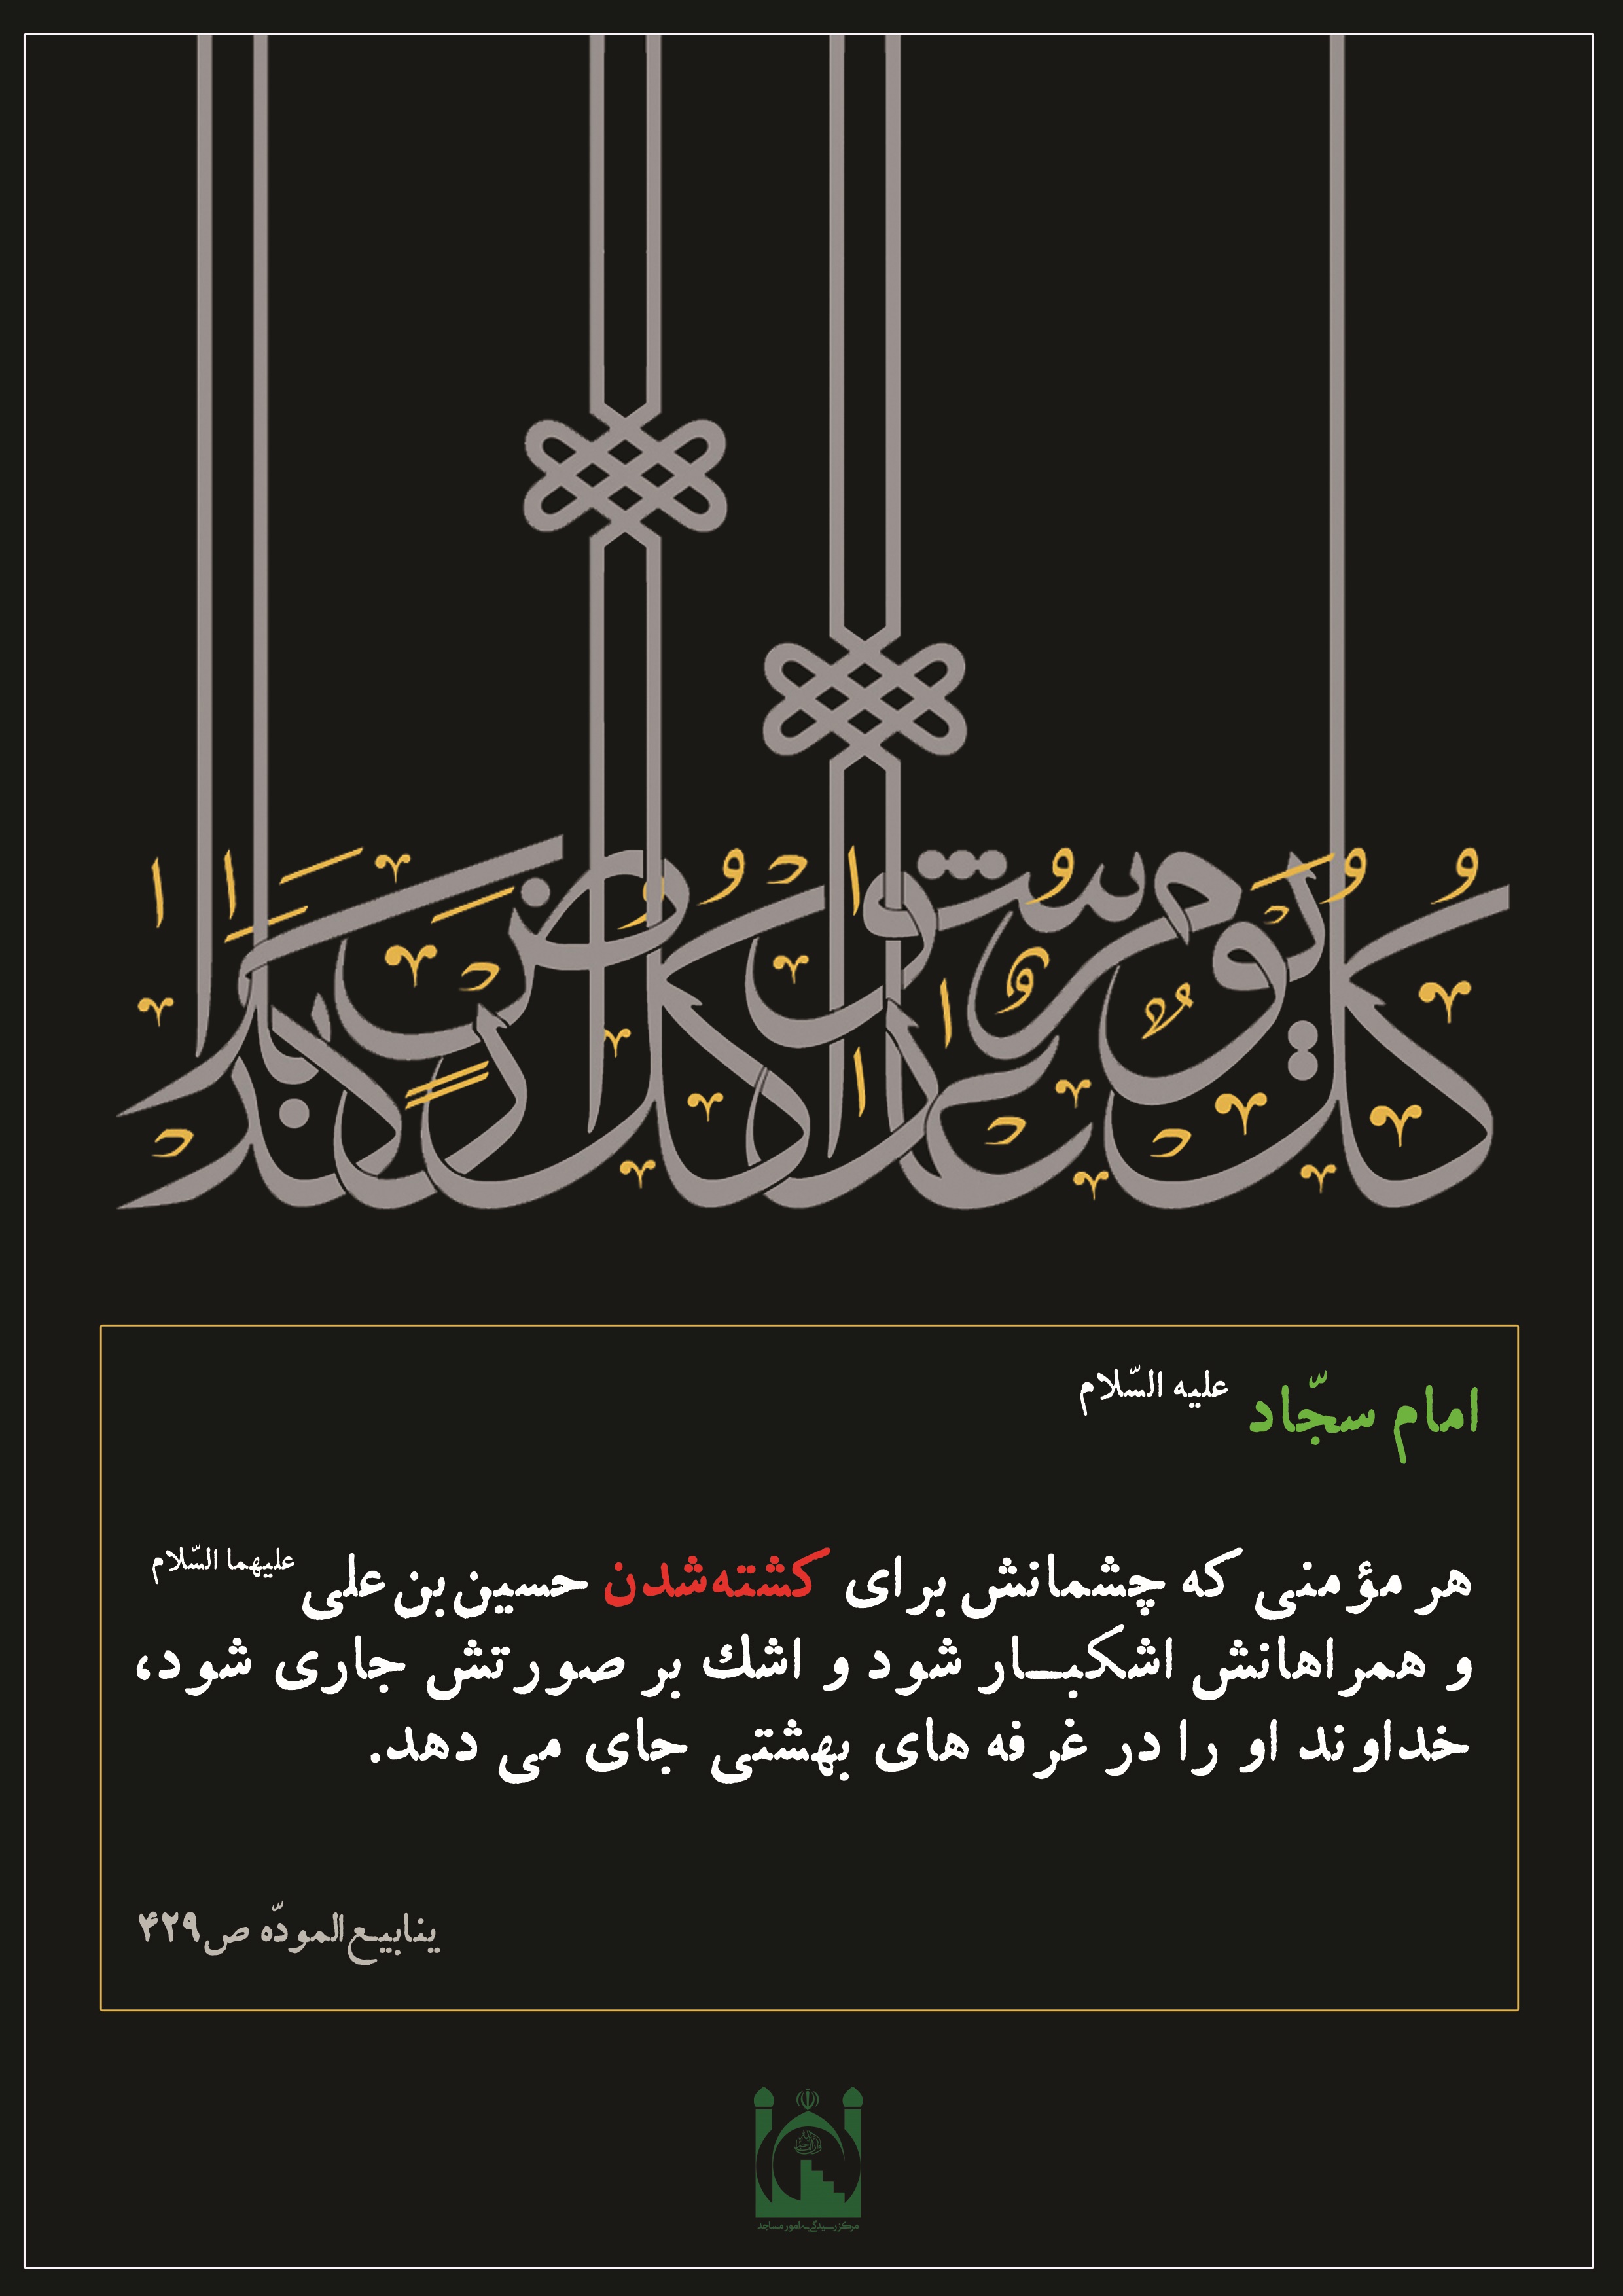 كل يوم عاشورا و كل ارض كربلا
امام سجّاد علیه السّلام
هر مؤمنی که چشمانش برای کشته‌شدن حسین‌بن‌علی علیهما السّلام
و همراهانش اشکبـــار شود و اشك بر صورتش جاری شود،
خداوند او را در غرفه های بهشتی جای می دهد.
ینابیع‌المودّه ص۴۲۹
مرکز رسیدگی به امور مساجد